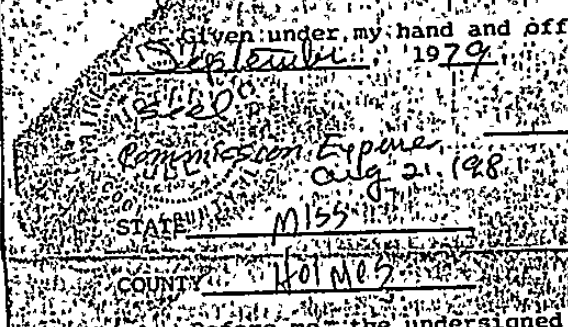 Given under my hand and off
September, 1979
"Seal"
Commission Expires
Aug 21, 1981
STATE Miss
COUNTY Holmes
Before me, the undersigned